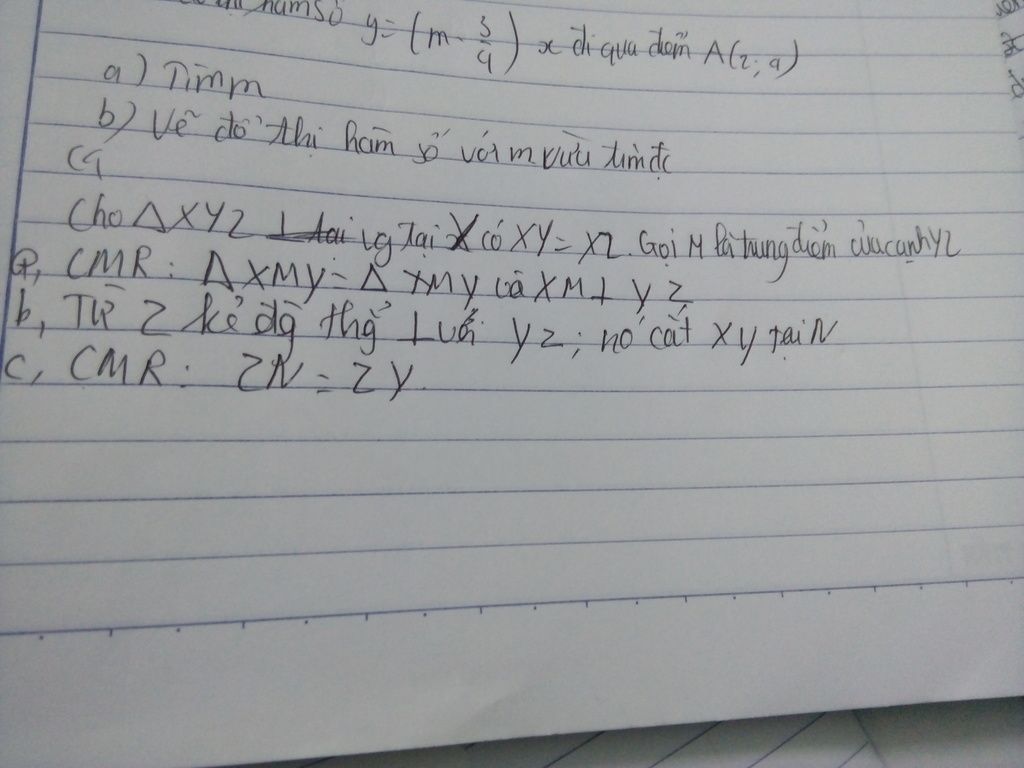 hàm số y = (m - 3/4) x đi qua điểm A(2; 9)
a) Tìm m
b) Vẽ đồ thị hàm số với m vừa tìm đc
C4
Cho Δ XYZ vg tại X có XY = XZ. Gọi M là trung điểm của cạnh YZ
a, CMR: Δ XMY = Δ XMY và XM ⊥ YZ
b, Từ Z kẻ đg thg ⊥ với YZ; nó cắt XY tại N
c, CMR: ZN = ZY.